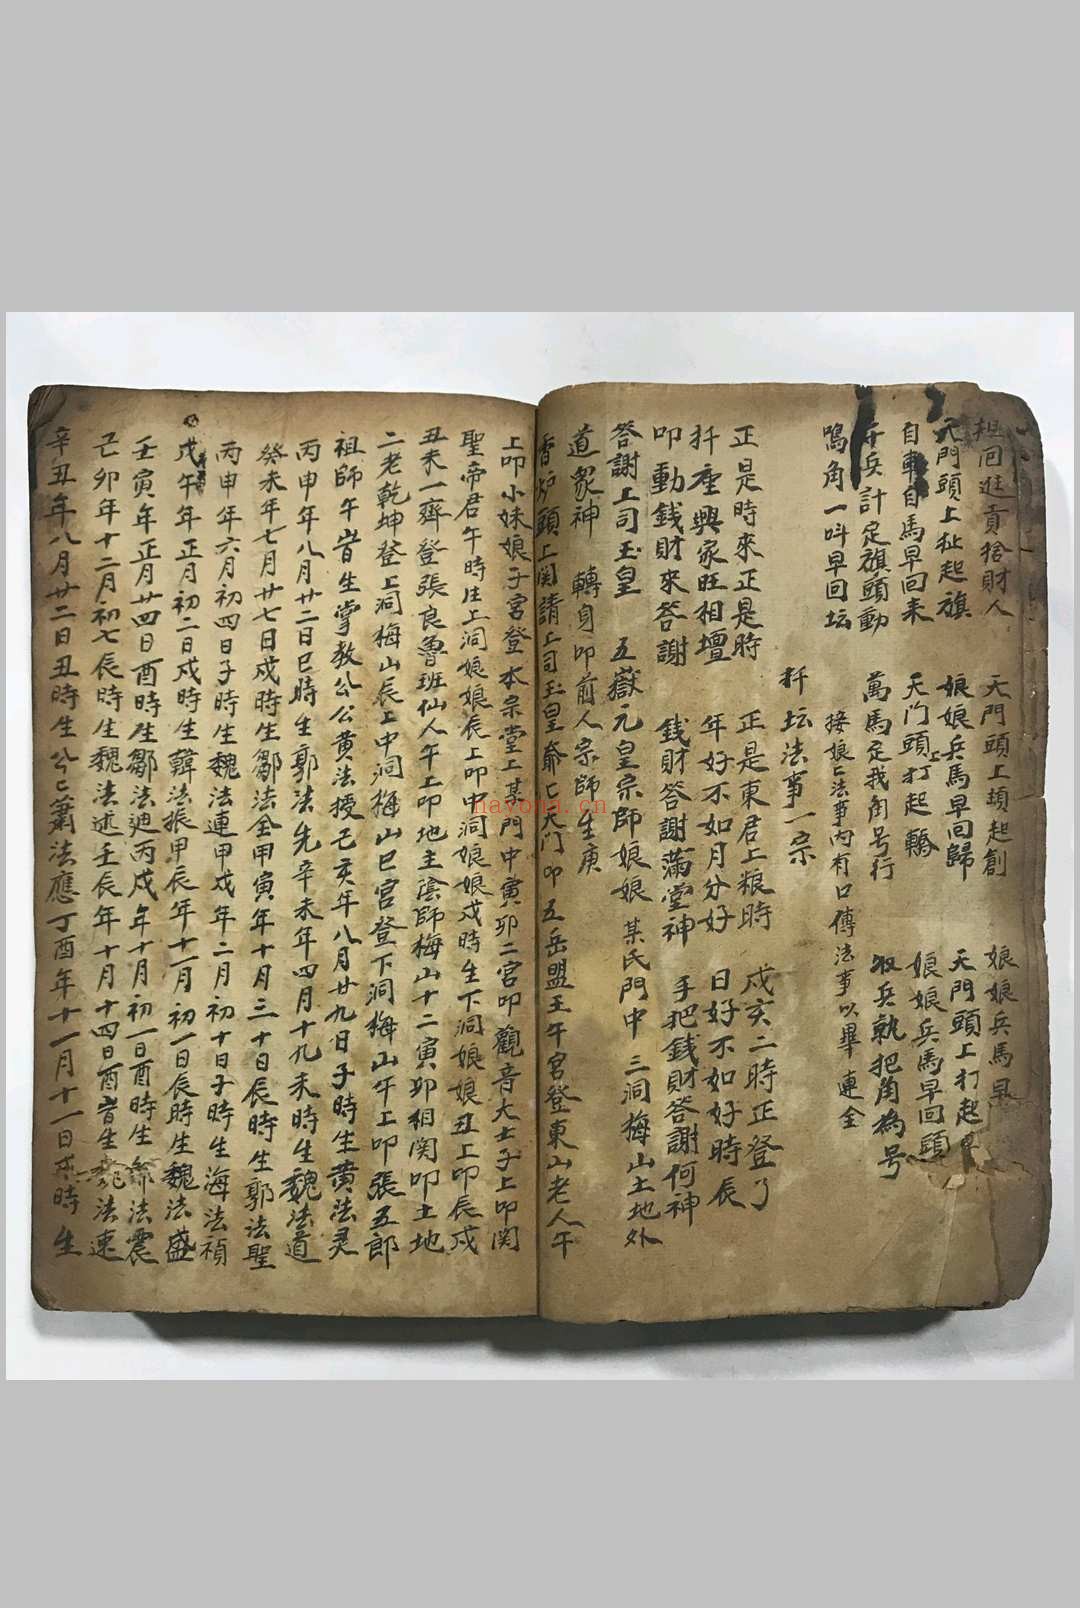 回逛貢捨財人　天門頭上頭起創　娘娘兵馬早
天門頭上扯起旗　娘娘兵馬早回歸　天門頭上打起
自車自馬早回来　天门頭上打起轎　娘娘兵馬早回頭
兵計定旗頭動　萬馬定我角号行　收兵執把角為号
鳴角一呌早回坛　接娘〻法事内有口傳法事以畢　連全
扦坛法事一宗
正是時來正是時　正是東君上粮時　戍亥二時正登了
扦座興家旺相壇　年好不如月分好　日好不如好時辰
叩動錢財來答謝　錢財答謝滿堂神　手把錢財答謝何神
答謝上司玉皇　五嶽元皇宗師娘娘　某氏門中　三洞梅山土地外
道衆神　轉身叩前人宗師生庚
香炉頭上関請上司玉皇爺〻天门叩五岳盟王午宮登東山老人午
上叩小妹娘子宮登本宗堂上某門中寅卯二宮叩觀音大士子上叩関
聖帝君午時生上洞娘娘辰上叩中洞娘娘戍時生下洞娘娘丑上叩辰戍
丑未一齊登張良魯班仙人午上叩地主陰師梅山十二寅卯相関叩土地
二老乾坤登上洞梅山辰上中洞梅山巳宮登下洞梅山午上叩張五郎
祖師午旹生掌教公公黄法授己亥年八月廿九日子時生黄法灵
丙申年八月廿二日巳時生郭法先辛未年四月十九未時生魏法道
癸未年七月廿七日戍時生鄒法全甲寅年十月三十日辰時生郭法聖
丙申年六月初四日子時生魏法連甲戍年二月初十日子時生海法禎
戊午年正月初二日戍時生韓法振甲辰年十一月初一日辰時生魏法盛
壬寅年正月廿四日酉時生鄒法廸丙戍年十月初一日酉時生法震
乙卯年十二月初七辰時生魏法述壬辰年十月十四日酉旹生魏法連
辛丑年八月廿二日丑時生公〻蕭法應丁酉年十一月十一日戍時生
nayona.cn